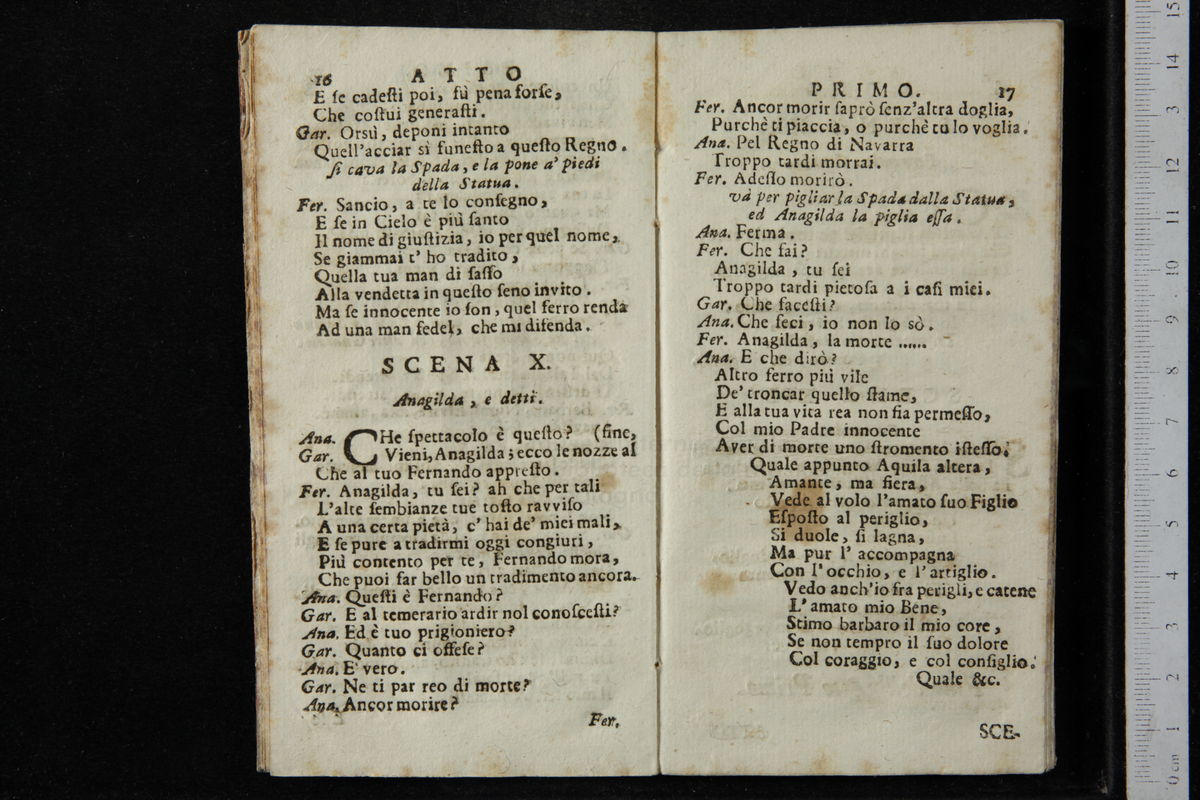 16 ATTO
E ſe cadeſti poi, fù pena forſe,
Che coſtui generaſti.
Gar. Orsù, deponi intanto
Quell'acciar sì funeſto a queſto Regno.
ſi cava la Spada, e la pone a' piedi
della Statua.
Fer. Sancio, a te lo conſegno,
E ſe in Cielo è più ſanto
Il nome di giuſtizia, io per quel nome,
Se giammai t' ho tradito,
Quella tua man di ſaſſo
Alla vendetta in queſto ſeno invito.
Ma ſe innocente io ſon, quel ferro renda
Ad una man fedel, che mi difenda.
SCENA X.
Anagilda, e detti.
Ana. CHe ſpettacolo è queſto? (fine,
Gar. Vieni, Anagilda; ecco le nozze al
Che al tuo Fernando appreſto.
Fer. Anagilda, tu ſei? ah che per tali
L'alte ſembianze tue toſto ravviſo
A una certa pietà, c' hai de' miei mali,
E ſe pure a tradirmi oggi congiuri,
Più contento per te, Fernando mora,
Che puoi far bello un tradimento ancora.
Ana. Queſti è Fernando?
Gar. E al temerario ardir nol conoſceſti?
Ana. Ed è tuo prigioniero?
Gar. Quanto ci offeſe?
Ana. E' vero.
Gar. Ne ti par reo di morte?
Ana. Ancor morire?
Fer.
PRIMO. 17
Fer. Ancor morir ſaprò ſenz'altra doglia,
Purchè ti piaccia, o purchè tu lo voglia.
Ana. Pel Regno di Navarra
Troppo tardi morrai.
Fer. Adeſſo morirò.
và per pigliar la Spada dalla Statua,
ed Anagilda la piglia eſſa.
Ana. Ferma.
Fer. Che fai?
Anagilda, tu ſei
Troppo tardi pietoſa a i caſi miei.
Gar. Che faceſti?
Ana. Che feci, io non lo sò.
Fer. Anagilda, la morte ......
Ana. E che dirò?
Altro ferro più vile
De' troncar quello ſtame,
E alla tua vita rea non fia permeſſo,
Col mio Padre innocente
Aver di morte uno ſtromento iſteſſo.
Quale appunto Aquila altera,
Amante, ma fiera,
Vede al volo l'amato ſuo Figlio
Eſpoſto al periglio,
Si duole, ſi lagna,
Ma pur l' accompagna
Con l' occhio, e l' artiglio.
Vedo anch'io fra perigli, e catene
L' amato mio Bene,
Stimo barbaro il mio core,
Se non tempro il ſuo dolore
Col coraggio, e col conſiglio.
Quale &c.
SCE-
0 cm 1 2 3 4 5 6 7 8 9 10 11 12 3 14 15